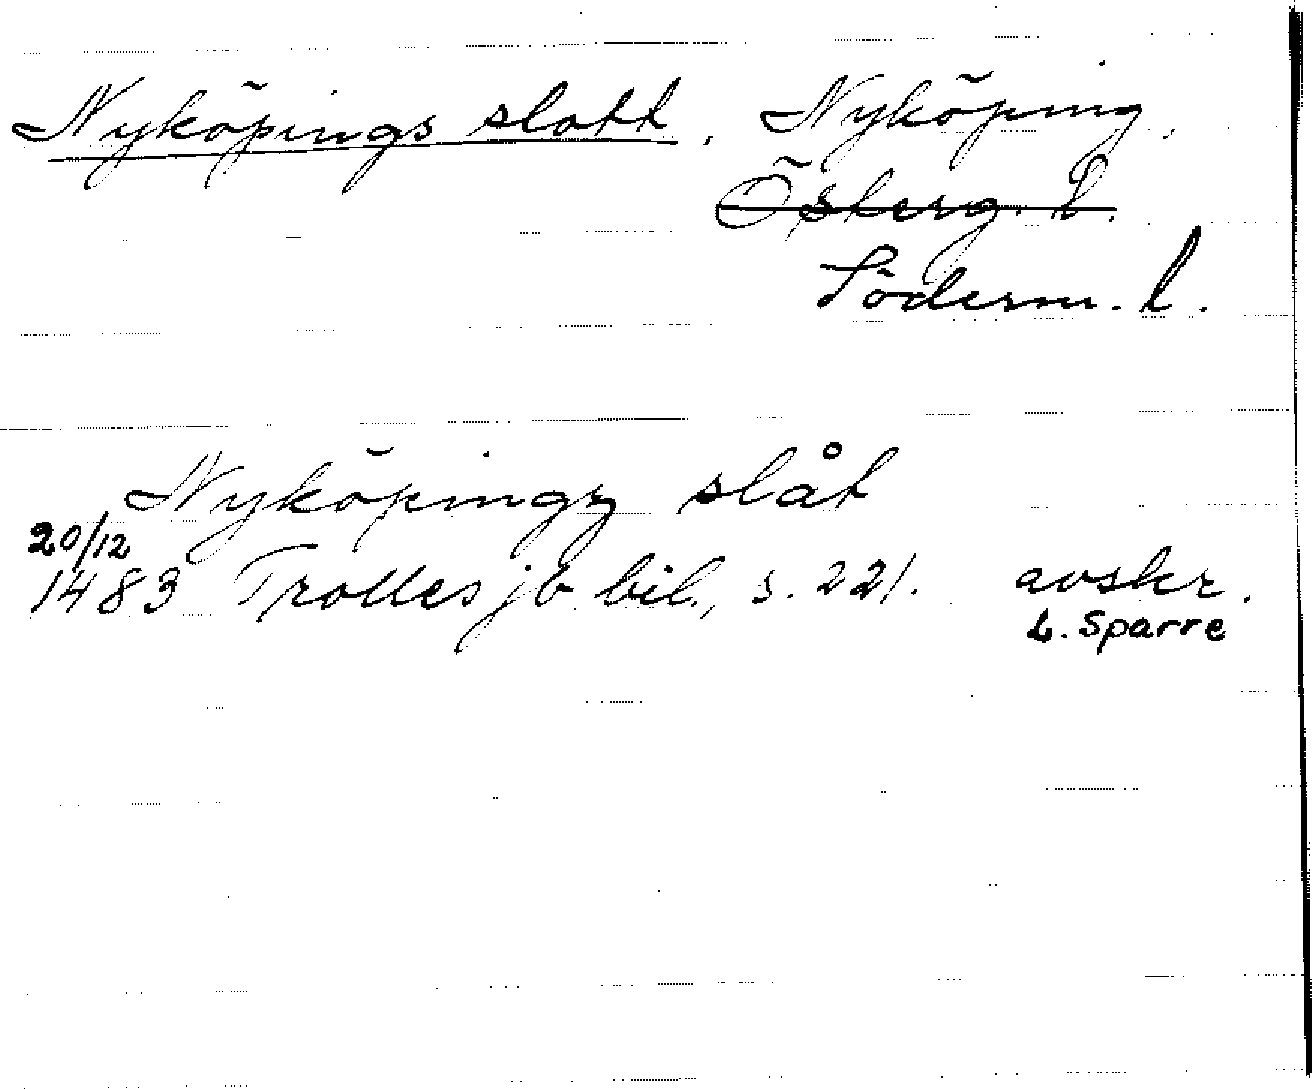 Nyköpings slott, Nyköping,
Österg. l.
Söderm. l.
Nyköpingz slåt
20/12
1483 Trolles jb bil., s. 221. avskr.
L. Sparre